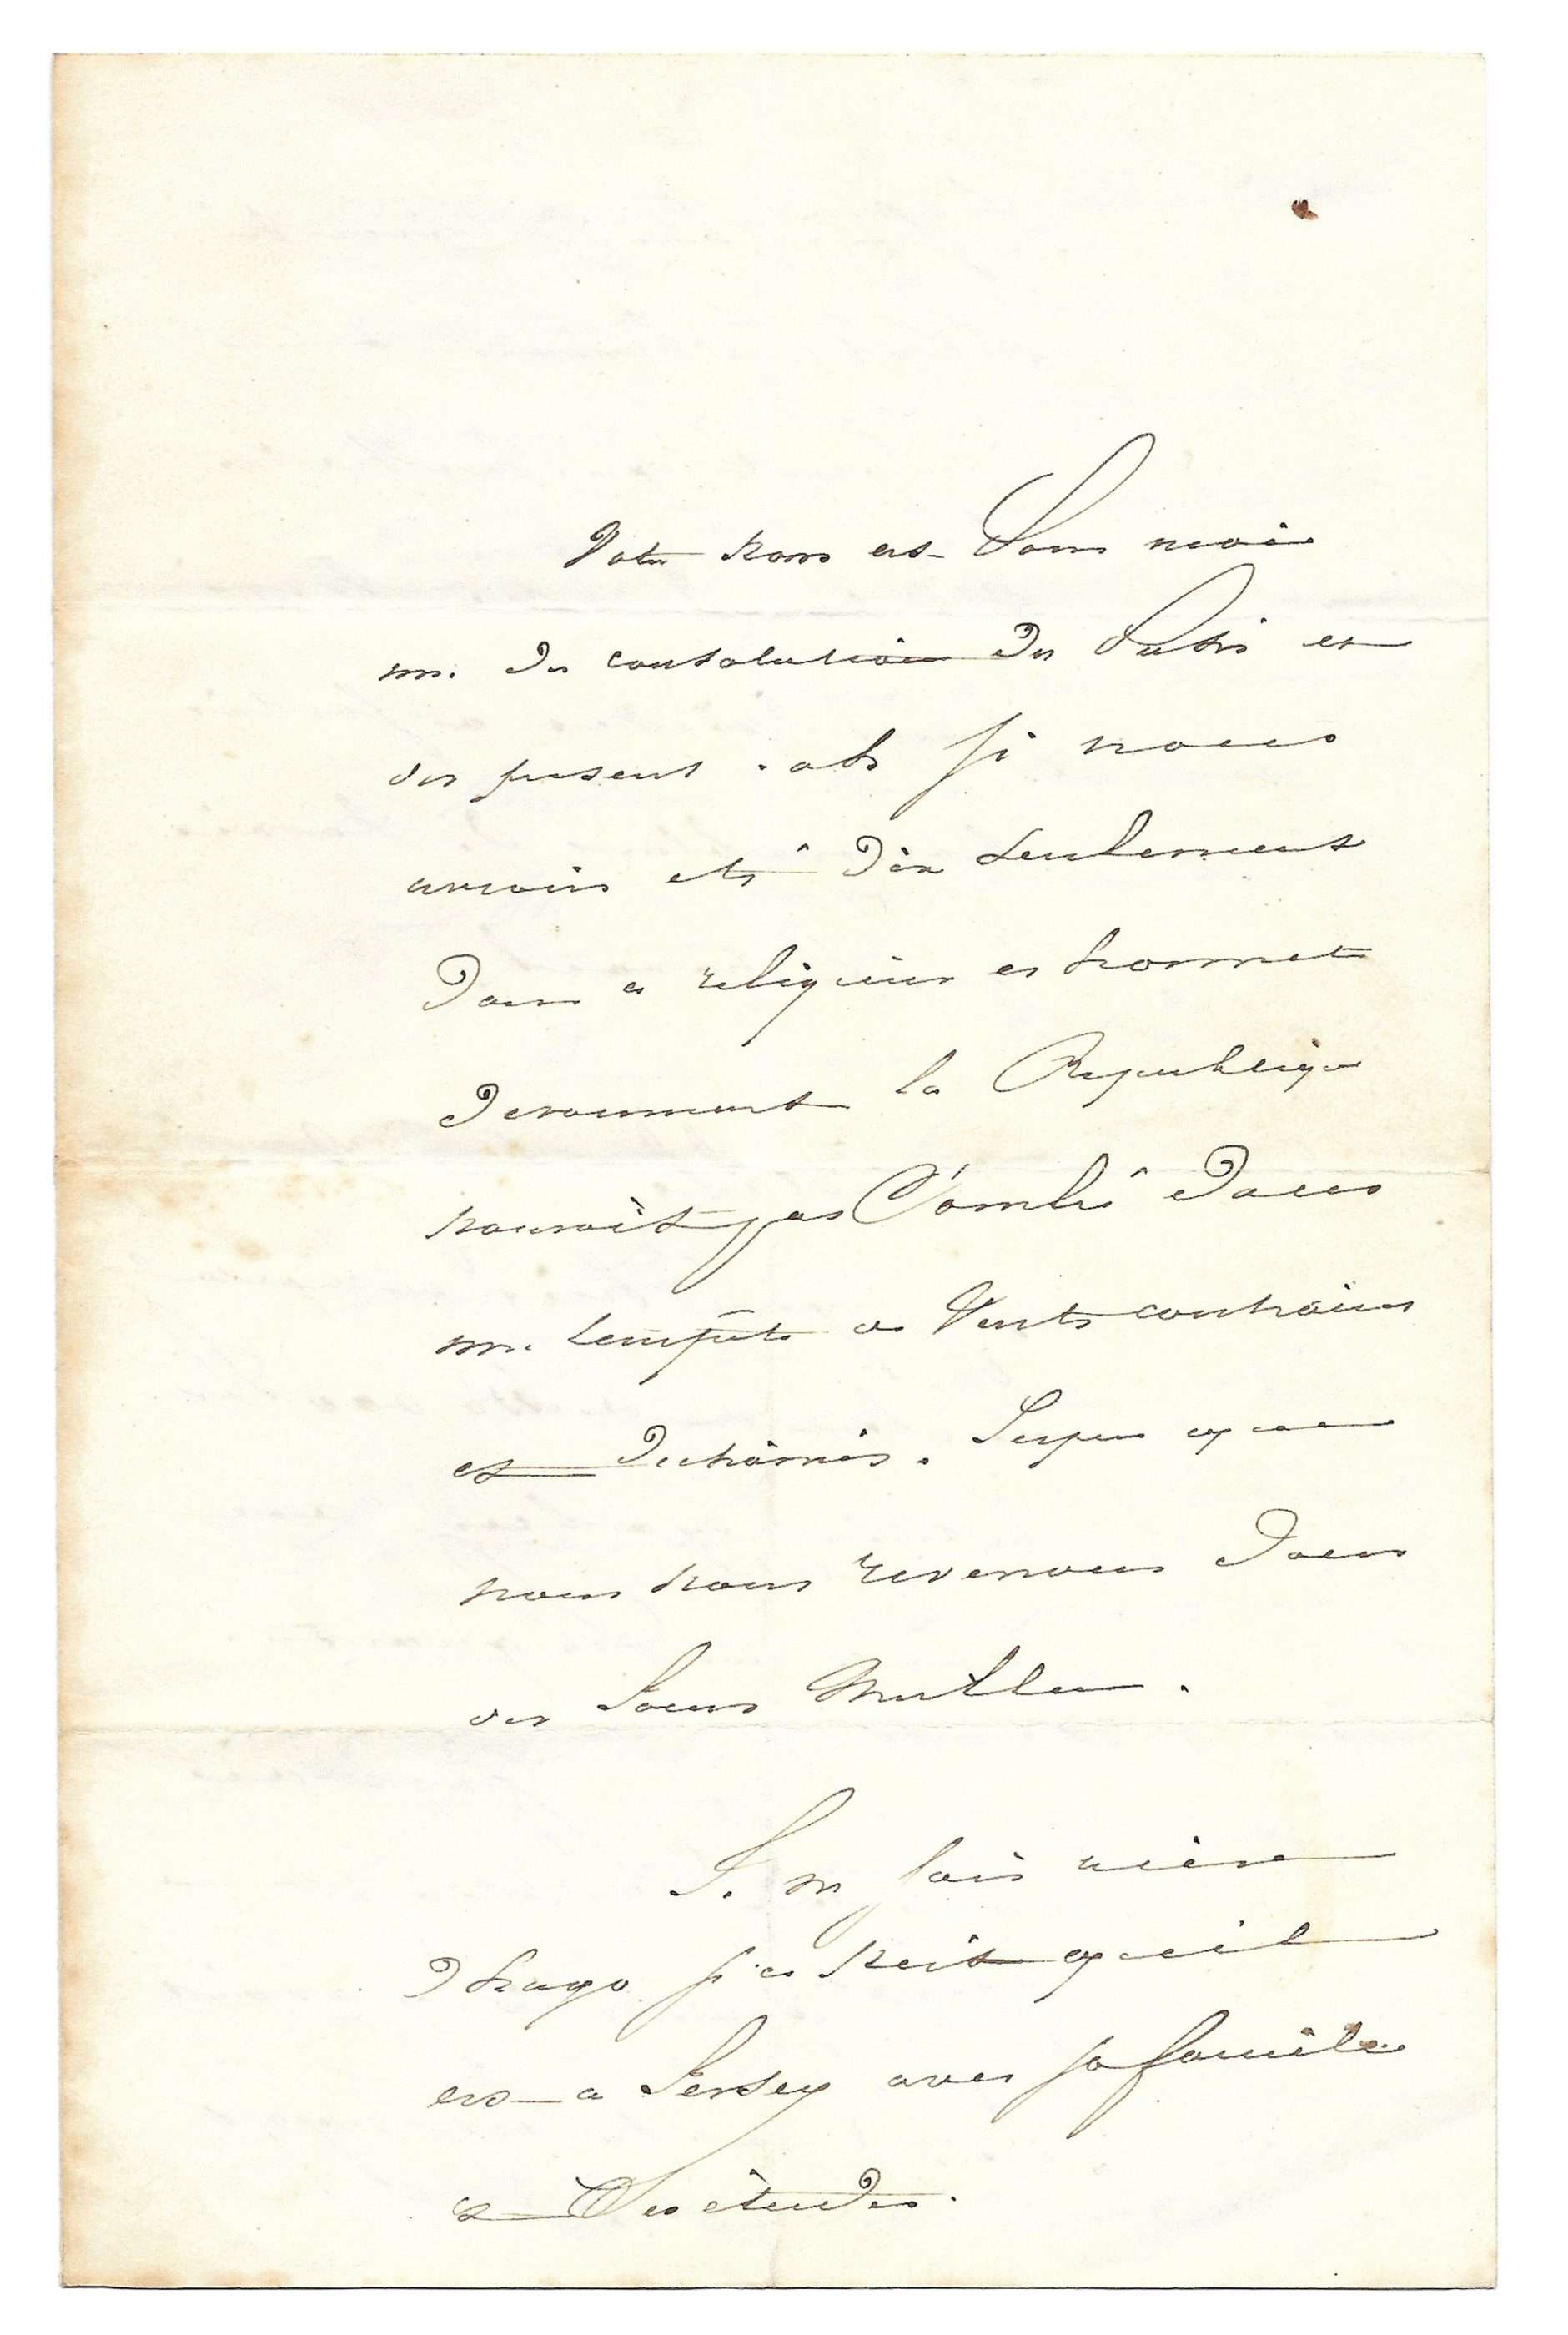 Votre nom est pour moi
une des consolations du Passé et
du present. ah si nous
avions été dix seulement
dans ce religieux et honnete
devouement la Republique
n'auroit pas sombré dans
une tempête de Vents contraires
et dechainés. J'espere que
nous nous reverrons dans
des Jours Meilleurs.
Je ne sais rien
d'hugo si ce n'est qu'il
est a Jersey avec sa famille
et Ses études.